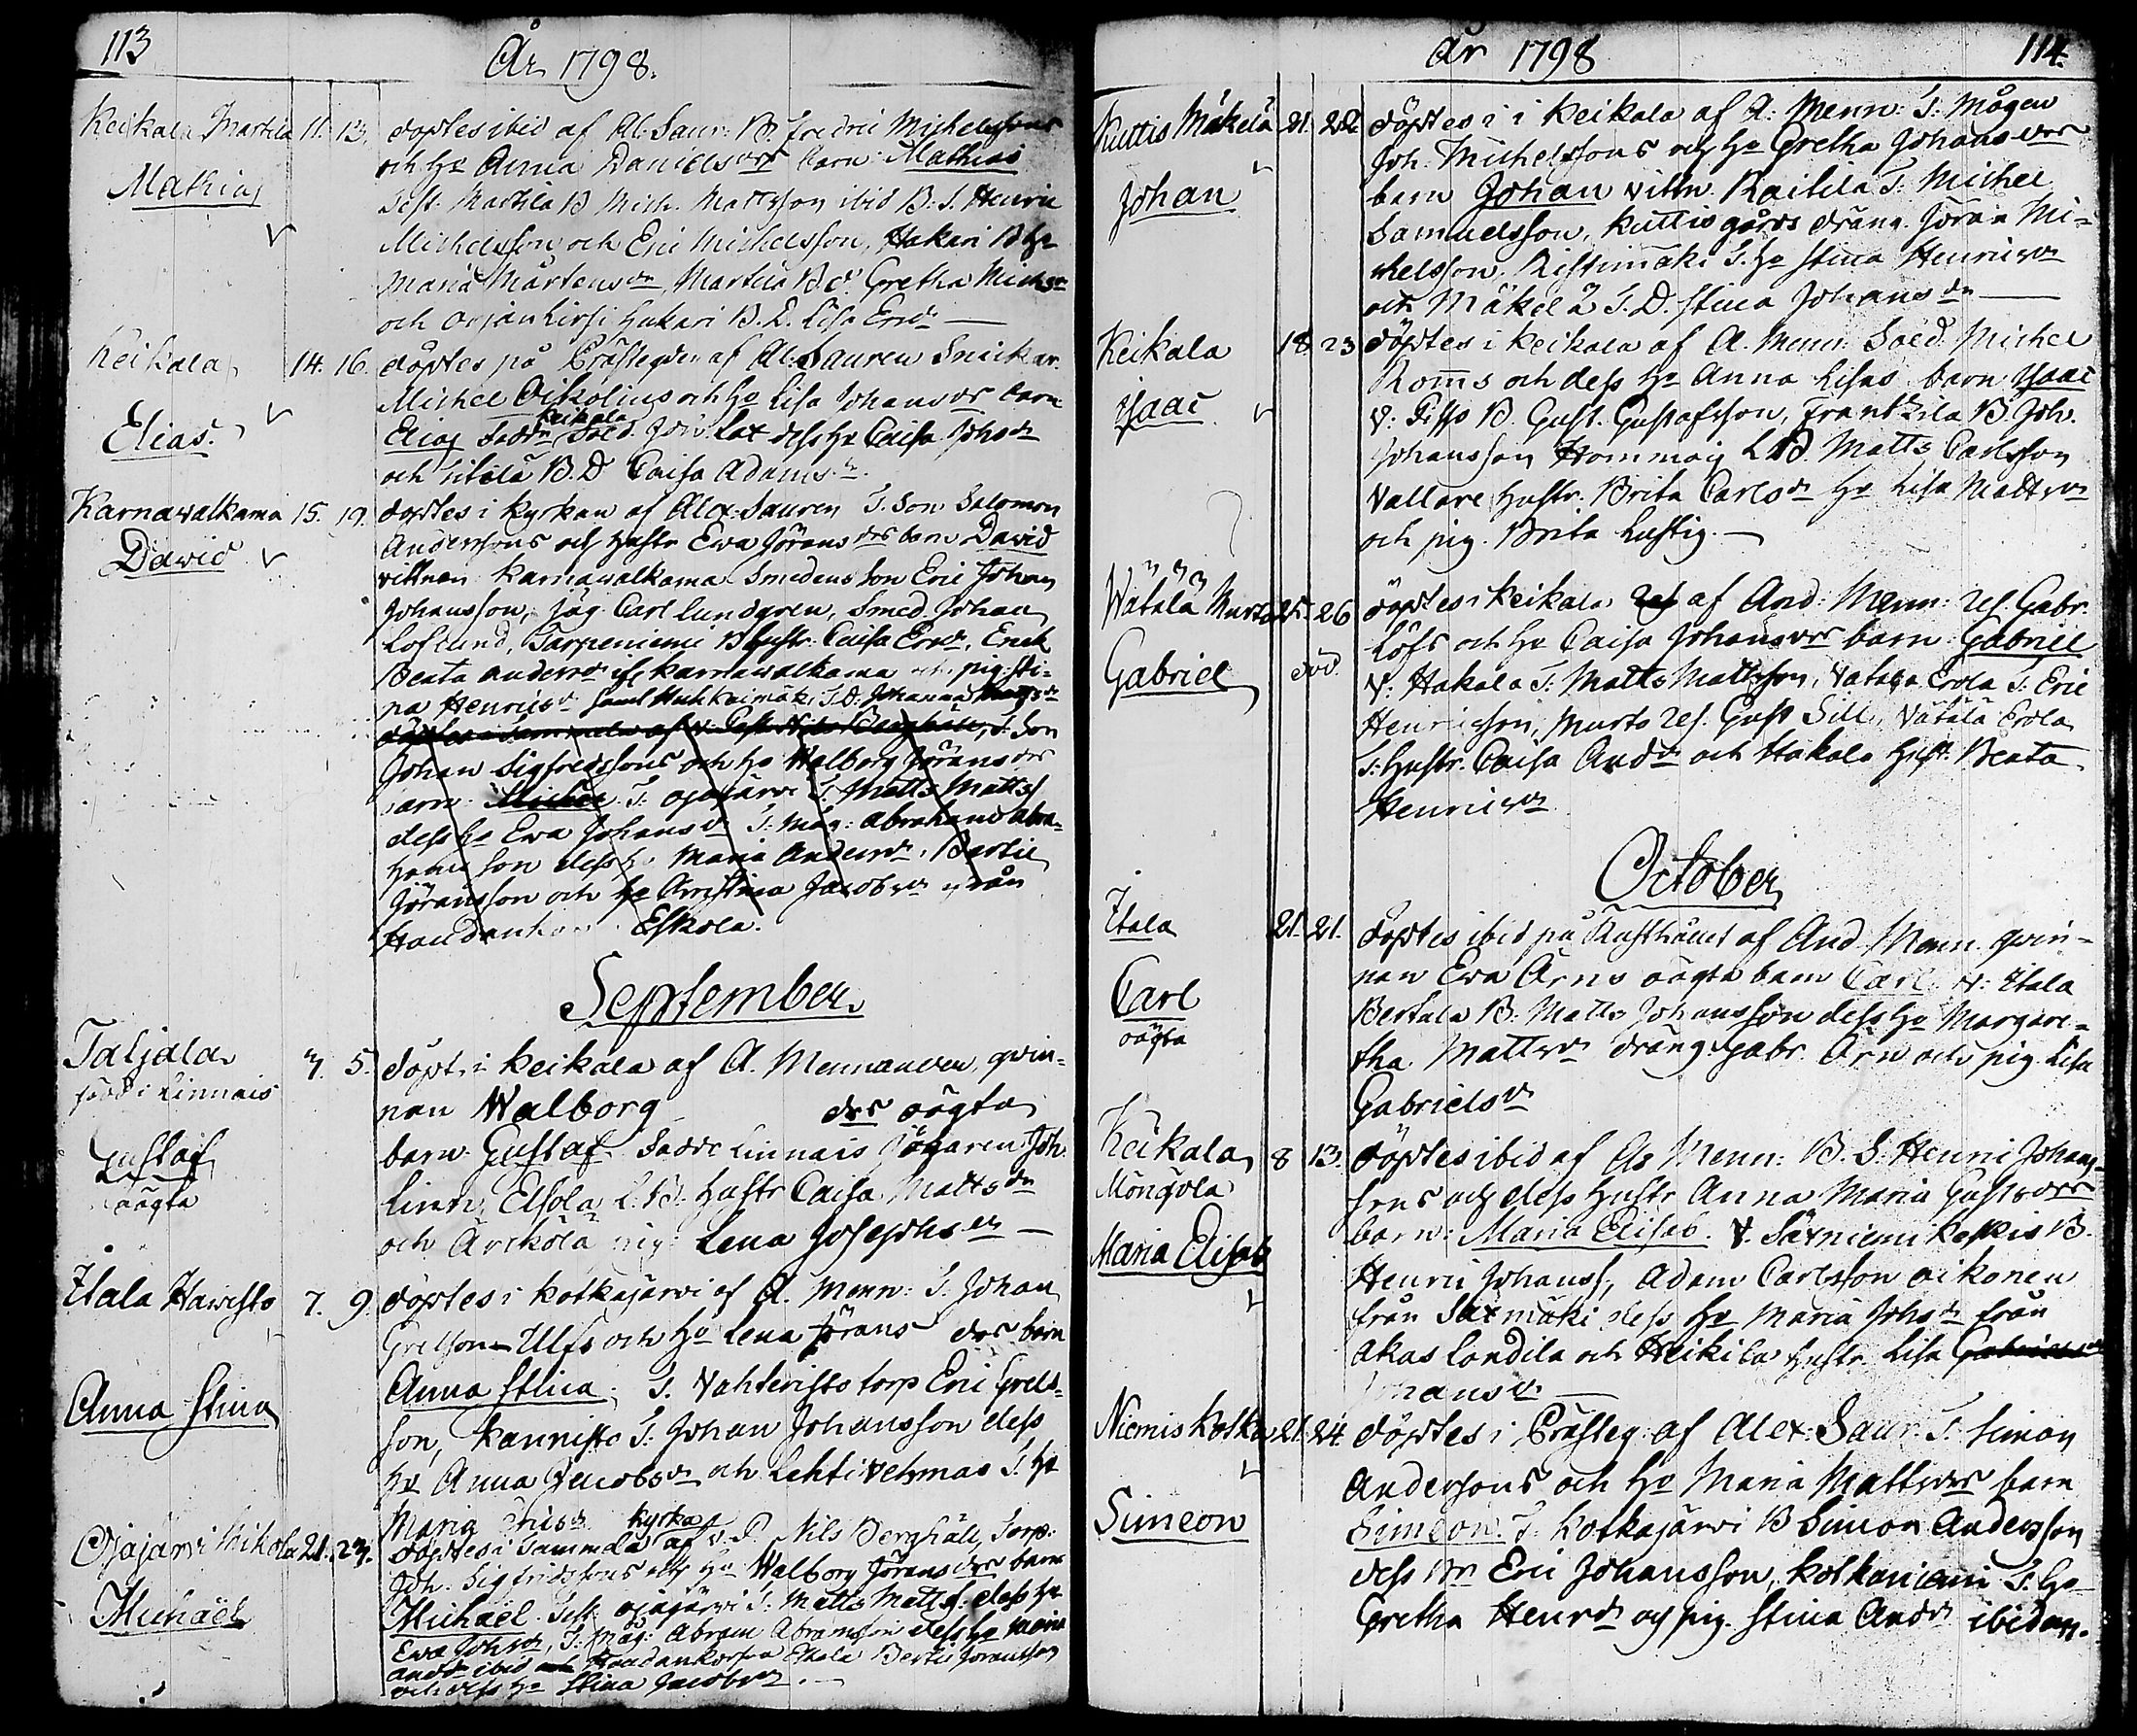 113
År 1798.
Keikala Martila 11. 13. döptes ibid af Al. Saur. B. Fredric Michelssons
och Ho Anna Daniels dr barn Mathias
Mathias
test. Martila B Mich. Mattsson ibid B. S. Henric
Michelsson och Eric Michelsson, Hakari B Ho
Maria Mårtens dr, Martila B d. Gretha Michs dr
och Hukari B. D. Lisa Ers dr
Keikala 14. 16. döptes på Prästegden af Al. Sauren Snickar.
Michel Oikolius och Ho Lisa Johans dr barn
Keikala
Elias Sold. Lax dess Ho Caisa Johs dr
Elias
och B. D Caisa Adams dr
Karnawalkama 15. 19. döptes i Kyrkan af Alex. Sauren T. Son Salomon
Anderssons och Hustr Ewa Jörans drs barn David
Dawid
vittnen Karnawalkama Smedens Son Eric Johan
Johansson, jäg. Carl Lundgren, Smed Johan
Loflund, Tarpeniemi B Hustr. Caisa Ers dr, Enck
Beata Anders dr Karnawalkama och pig. Sti-
na Henrics dr Saml Huhkaimäki T. D. Johanna
döptes i Sammola af V. Past Nils Berghäll, T. Son
Johan Sigfredssons och Ho Walborg Jörans drs
barn Michel T. Ojajärvi T. Matts Matts
dess Ho Ewa Johans dr T: Måg: Abraham Abra-
hamsson dess Ho Maria Anders dr, Bertil
Jöransson och Ho Christina Jacobs dr från
Haudankor Eskola.
September
Taljala 3. 5. döpt. i Keikala af A. Mennander, qvin-
född i Linnais
nan Walborg drs oägta
Gustaf
barn Gustaf. Linnais Jägaren Joh.
oägta
Linn, Elsola L. B. Hustr Caisa Matts dr
och Ärekölä pig. Lena Josephs dr
Itala Hawisto 7. 9. döptes i Kotkajärvi af A. Menn: T. Johan
Grelson Ulfs och Ho Lena Jörans drs barn
Anna Stina
Anna Stina. T. Vahteristo torp Eric Grels-
son, Kannisto T. Johan Johansson dess
Ho Anna Jacobs dr och Lehtivehmas T. Ho
Maria Erics dr
Kyrka
Ojajärvi Mikola 21. 23. döptes i Sammola af V. P. Nils Berghäll, Torp.
Joh. Sigfridssons och Ho Walborg Jörans drs barn
Michaël
Michaël. Test. Ojajärvi T: Matts Mattss. dess Ho
Ewa Johs dr, T: Måg: Abram Abramson dess Ho Maria
Ands dr ibid Haudankorfva Eskola Bertil Jöransson
och dess Ho Stina Jacobs dr
År 1798
114.
Kuttis Mäkelä 21. 22. döptes i Keikala af A: Menn: T: Mågen
Joh. Michelssons och Ho Gretha Johans drs
Johan
barn Johan vittn. Raitila T: Michel
Samuelsson, Kuttis gårds dräng. Jöran Mi-
chelsson. Ristimäki T. Ho Stina Henrics dr
och Mäkelä T. D. Stina Johans dr
Keikala 18 23 döptes i Keikala af A. Menn. Sold. Michel
Roms och dess Ho Anna Lisas barn Isaac
Isaac
V: Pisso B. Gust. Gustafsson, Frantzila B Joh.
Johansson Hommaij L B. Matts Carlsson
Vallare Hustr. Brita Carls dr Ho Lisa Matts dr
och pig. Brita Lustig.
Wätälä Murto 25. 26 döptes i Keikala af And: Menn: res. Gabr.
Löfs och Ho Caisa Johans drs barn Gabriel
Gabriel
död
V: Hakala T: Matts Mattsson, Vätälä Erola T: Eric
Henricsson, Murto res. Gust Sill. Vätälä Erola
T: Hustr. Caisa And dr och Hakala Hust. Beata
Henrics dr
October
Itala 21. 21. döptes ibid på Rusthållet af And. Menn. qwin-
nan Ewa Ärns oägta barn Carl. V: Itala
Carl
oägta
Bertala B: Matts Johansson dess Ho Margare-
tha Matts dr dräng. Gabr. Ärn och pig. Lisa
Gabriels dr
Keikala 8 13. döptes ibid af As Menn: B. S. Henric Johans-
Möngola
sons och dess Hustr Anna Maria Gusts drs
Maria Elisab
barn: Maria Elisab. V. Säxniemi Keskis B.
Henric Johanss., Adam Carlsson Oikonen
från Saxmäki dess Ho Maria Johs dr från
Akas Londila och Heikila Hustr. Lisa Gabriels dr
Johans dr
Niemis Kotka 21. 24. döptes i Prästeg: af Alex: Saur. T: Simon
Anderssons och Ho Maria Matts drs barn
Simeon
Simeon. T: Kotkajärvi B Simon Andersson
dess Br Eric Johansson, Kotkaniemi T: Ho
Gretha Henrs dr och pig. Stina And dr ibidem.